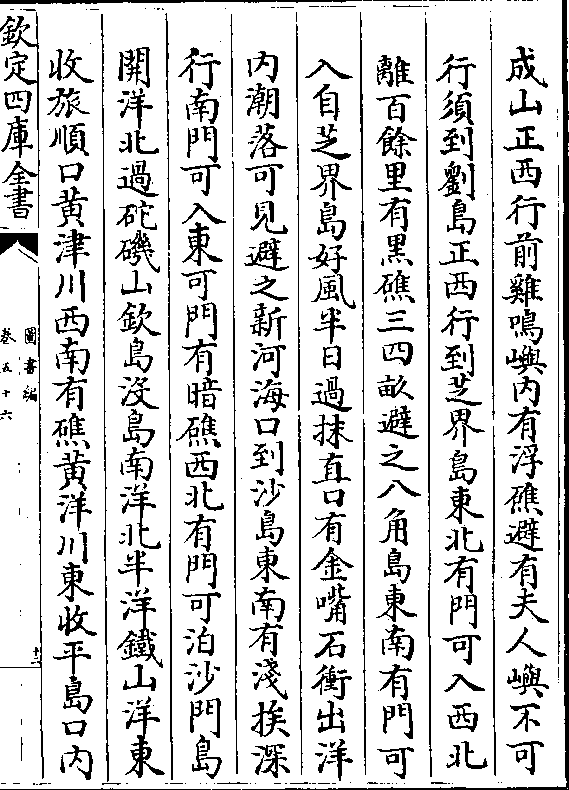 成山正西行前雞鳴嶼内有浮礁避有夫人嶼不可
行須到劉島正西行到芝界島東北有門可入西北
離百餘里有黑礁三四畝避之八角島東南有門可
入自芝界島好風半日過抹直口有金嘴石衝出洋
内潮落可見避之新河海口到沙島東南有淺挨深
行南門可入東可門有暗礁西北有門可泊沙門島
開洋北過砣磯山欽島沒島南洋北半洋鐵山洋東
收旅順口黄津川西南有礁黄洋川東收平島口内
欽定四庫全書
圖書編
卷五十六